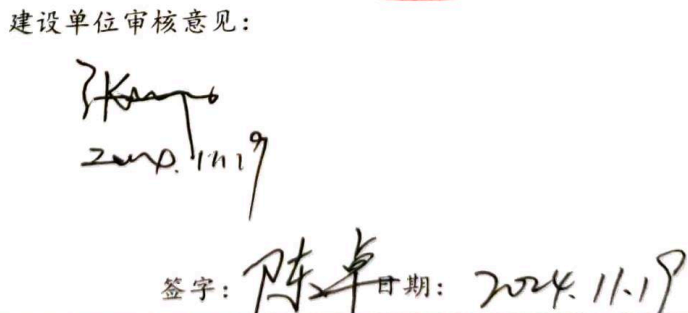 建设单位审核意见：
张
11.19
签字：陈卓日期：2024.11.19